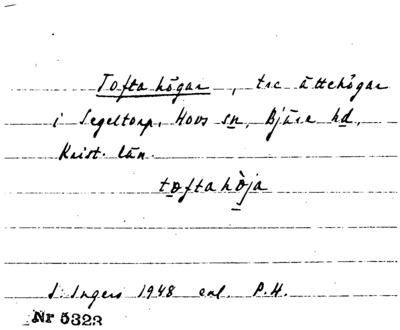 Tofta högar, tre ättehögar
i Segeltorp, Hovs sn, Bjäre hd,
Krist. län.
toftahòja
I. Ingers 1948 enl. P.H.
Nr 5323